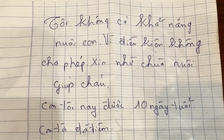 Tôi không có khả năng
nuôi con. Vì điều kiện không
cho phép. Xin nhờ chùa nuôi
giúp cháu
Con tôi nay được 10 ngày tuổi
Con tôi đã tiêm